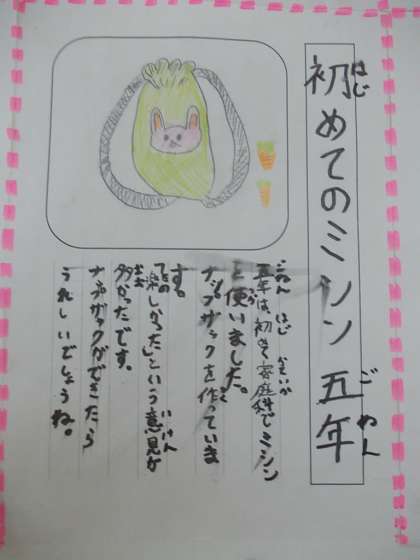 はじ ごねん
初めてのミシン 五年
ごねん はじ かていか
五年は、初めて家庭科でミシン
を使いました。
ナップザックを作っていま
す。
たの いけん
「楽しかった」という意見が
おお
多かったです。
ナップザックができたら
うれしいでしょうね。